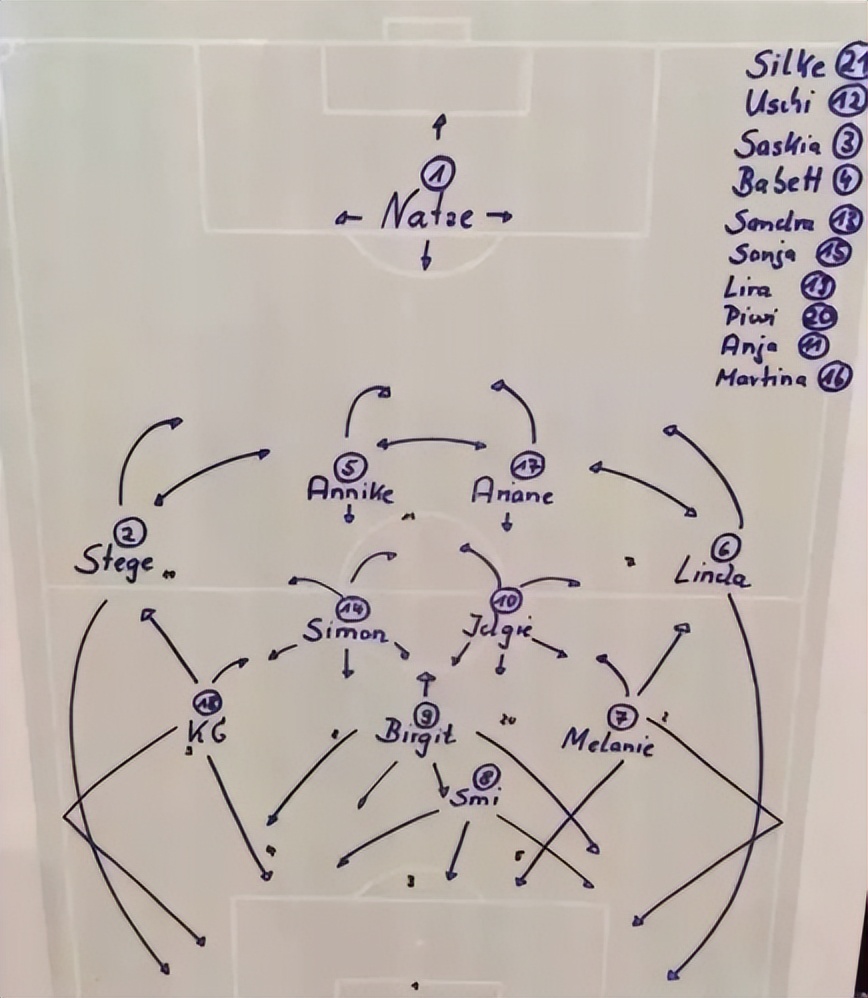 Silke 21
Uschi 12
Saskia 3
Babett 4
Sandra 13
Sonja 15
Lira 19
Piwi 20
Anja 11
Martina 16
1
Natze
5
Annike
17
Ariane
2
Stege
6
Linda
14
Simon
10
18
KG
9
Birgit
7
Melanie
8
Smi
20
3
1